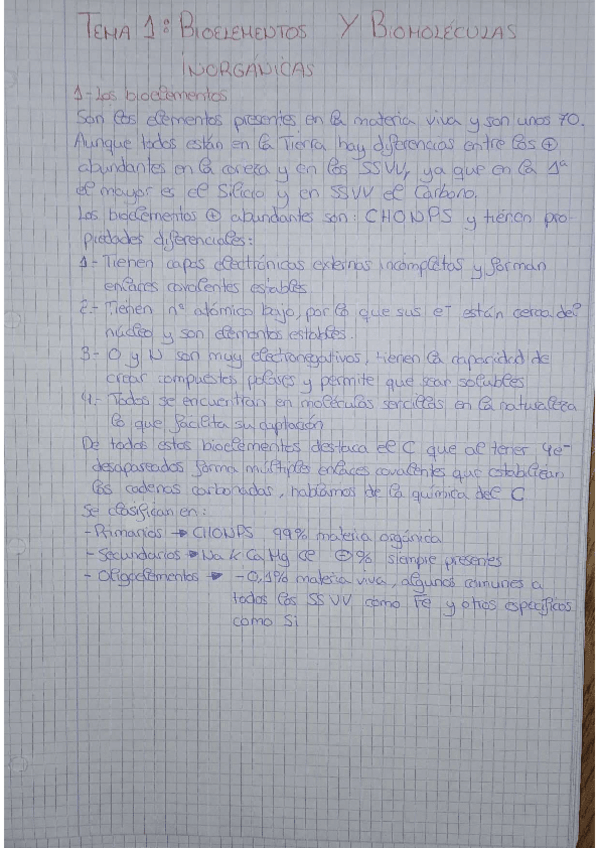 TEMA 1: BIOELEMENTOS Y BIOMOLÉCULAS
INORGÁNICAS
1- Los bioelementos
Son los elementos presentes en la materia viva y son unos 70.
Aunque todos están en la Tierra hay diferencias entre los ⊕
abundantes en la coreza y en los SSVV, ya que en la 1ª
el mayor es el Silicio y en SSVV el Carbono.
Los bioelementos ⊕ abundantes son: CHONPS y tienen pro-
piedades diferenciales:
1- Tienen capas electrónicas externas incompletas y forman
enlaces covalentes estables
2- Tienen nº atómico bajo, por lo que sus e⁻ están cerca del
núcleo y son elementos estables.
3- O y N son muy electronegativos, tienen la capacidad de
crear compuestos polares y permite que sean solubles
4.- Todos se encuentran en moléculas sencillas en la naturaleza
lo que facilita su captación
De todos estos bioelementos destaca el C que al tener 4e⁻
desapareados forma múltiples enlaces covalentes que establecen
las cadenas carbonadas, hablamos de la química del C
Se clasifican en:
- Primarios → CHONPS 99% materia orgánica
- Secundarios → Na K Ca Mg Cl ⊖% siempre presentes
- Oligoelementos → -0,1% materia viva, algunos comunes a
todos los SSVV como Fe y otros específicos
como Si